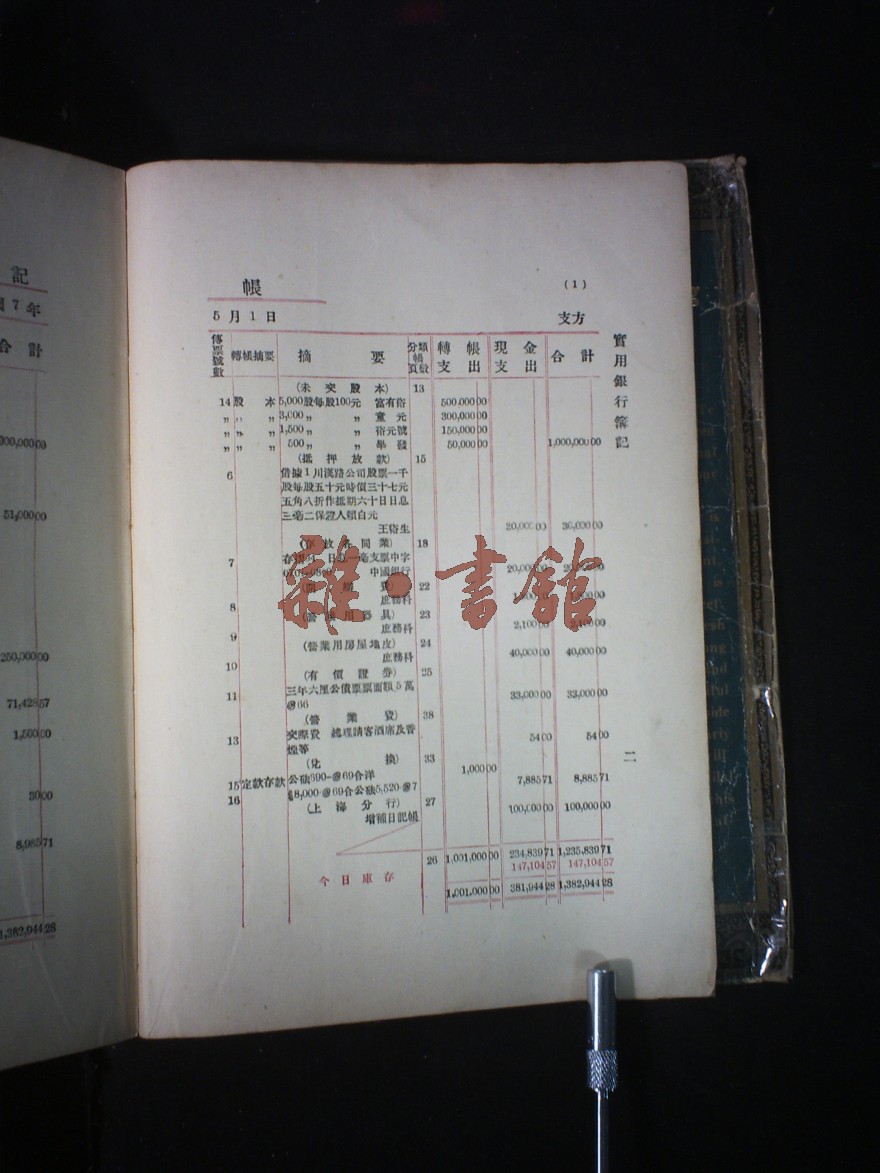 記
7 年
合 計
000,000 00
51,000 00
250,000 00
71,428 57
1,500 00
30 00
8,985 71
1,382,944 28
帳 (1)
5 月 1 日 支方
傳票號數 轉帳摘要 摘 要 分類帳頁數 轉帳支出 現金支出 合計
(未交股本) 13
14 股 本 5,000股每股100元 富有銜 500,000 00
〃 〃 〃 3,000〃 〃 童 元 300,000 00
〃 〃 〃 1,500〃 〃 衕元號 150,000 00
〃 〃 〃 500〃 〃 畢 發 50,000 00 1,000,000 00
(抵押放款) 15
6 借據1川漢路公司股票一千
股每股五十元時價三十七元
五角八折作抵期六十日日息
三毫二保證人賴自元
王衕生 30,000 00 30,000 00
(存放各同業) 18
7
中國銀行 20,000 00
22
8 庶務科
23
9 庶務科 2,100 00 2,100 00
(營業用房屋地皮) 24
10 庶務科 40,000 00 40,000 00
(有價證券) 25
11 三年六厘公債票票面額5萬
@66 33,000 00 33,000 00
(營業費) 38
13 交際費 總理請客酒席及香
煙等 54 00 54 00
(兌換) 33
15 定款存款 公砝690-@69合洋 1,000 00
16 8,000-@69合公砝5,520-@7 7,885 71 8,885 71
(上海分行) 27
增補日記帳 100,000 00 100,000 00
26 1,001,000 00 234,839 71 1,235,839 71
今日庫存 147,104 57 147,104 57
1,001,000 00 381,944 28 1,382,944 28
實用銀行簿記
二
雜·書館